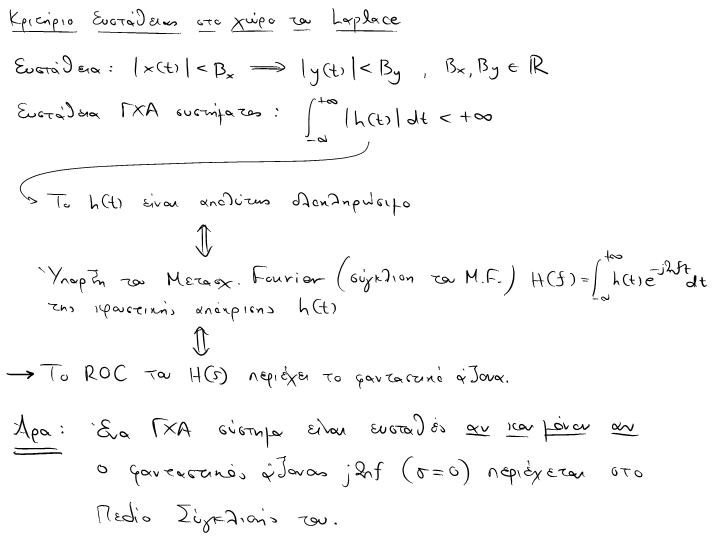 Κριτήριο Ευστάθειας στο χώρο του Laplace
Ευστάθεια: |x(t)| < Bx ⟹ |y(t)| < By , Bx, By ∈ ℝ
Ευστάθεια ΓΧΑ συστήματος: ∫_{-∞}^{+∞} |h(t)| dt < +∞
Το h(t) είναι απολύτως ολοκληρώσιμο
⇕
Ύπαρξη του Μετασχ. Fourier (σύγκλιση του Μ.F.) H(f) = ∫_{-∞}^{+∞} h(t) e^{-j2πft} dt
της κρουστικής απόκρισης h(t)
⇕
→ Το ROC του H(s) περιέχει το φανταστικό άξονα.
Άρα: Ένα ΓΧΑ σύστημα είναι ευσταθές αν και μόνον αν
ο φανταστικός άξονας j2πf (σ=0) περιέχεται στο
Πεδίο Σύγκλισής του.